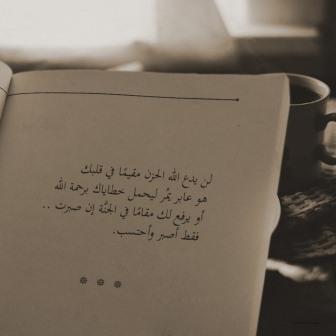 لن يدع الله الحزن مقيمًا في قلبك
هو عابر يمُر ليحمل خطاياك برحمة الله
أو يرفع لك مقامًا في الجنَّة إن صبرت ..
فقط أصبر وأحتسب.